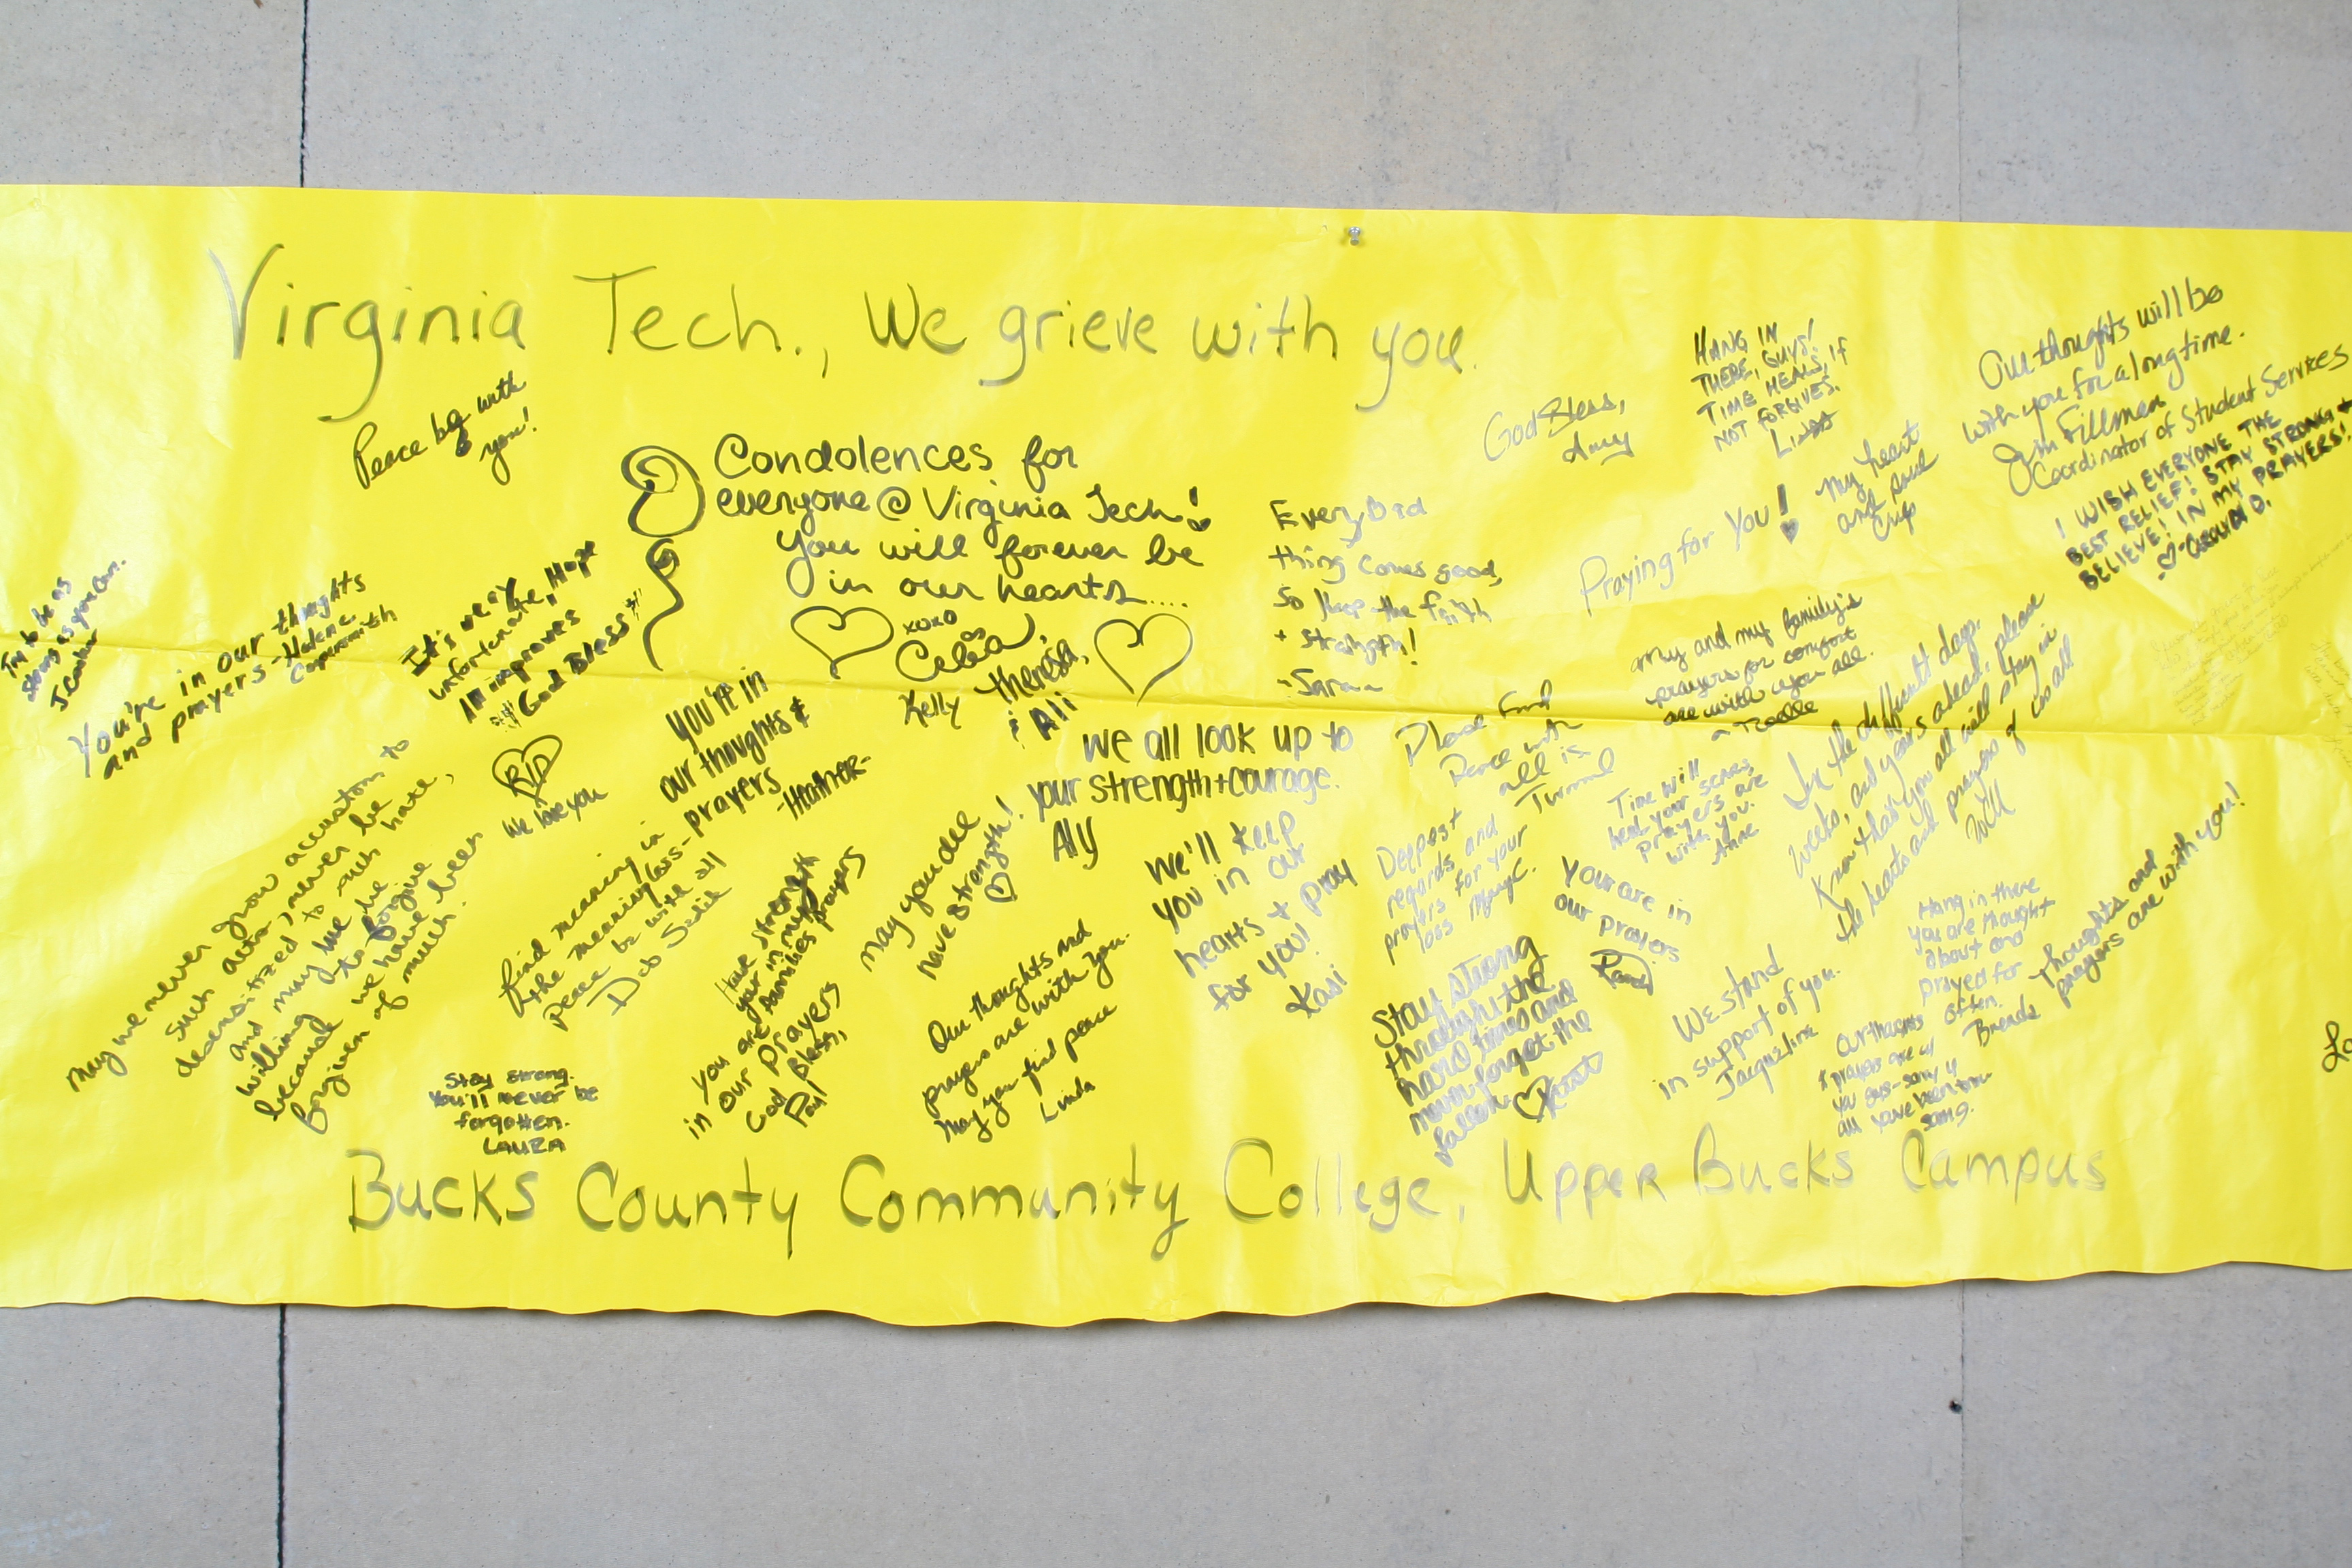 Virginia Tech., We grieve with you.
Peace be with
you!
Condolences for
everyone @ Virginia Tech!
You will forever be
in our hearts....
xoxo
Kelly
Theresa,
& Ali
Every Bad
thing comes good,
So keep the faith
+ strength!
-Sara
God Bless,
Amy
HANG IN
THERE, GUYS!
TIME HEALS, IF
NOT FORGIVES.
LINDA
Our thoughts will be
with you for a long time.
Jim Fillman
Coordinator of Student Services
I WISH EVERYONE THE
BEST RELIEF! STAY STRONG +
BELIEVE! IN MY PRAYERS!
My heart
and soul
Praying for You!
Try to be as
strong as you can.
You're in our thoughts
and prayers - Helene
Copersmith
It's very
unfortunate, Hope
All improves
God Bless
RIP
We love you
You're in
our thoughts &
prayers
-Heather-
We all look up to
your strength + courage.
Aly
Please Find
Peace with
all is
my and my family's
prayers for comfort
are with you all.
Time will
heal your scars,
prayers are
with you.
Anne
In the difficult days,
weeks, and years ahead, please
know that you all will stay in
the hearts and prayers of us all
Will
May we never grow accustom to
such acts, never be
desensitized to such hate,
and may we be
willing to forgive
because we have been
forgiven of much.
Find meaning in
the meaningless-
Peace be with all
Deb Sadie
Have strength
your in my
families prayers
You are
in our prayers
God Bless,
Paul
may you all
have strength!
We'll keep
you in our
hearts & pray
for you!
Kasi
Deepest
regards and
prayers for your
loss
Your are in
our prayers
Our thoughts and
prayers are with you.
May you find peace
Linda
Stay strong
through the
hard times and
never forget the
fallen.
We stand
in support of you.
Jacqueline
Hang in there
you are thought
about and
prayed for
often.
Brenda
Thoughts and
prayers are with you!
Our thoughts
& prayers are w/
you guys - sorry y
all have been thru
Stay strong.
You'll never be
forgotten.
LAURA
Bucks County Community College, Upper Bucks Campus